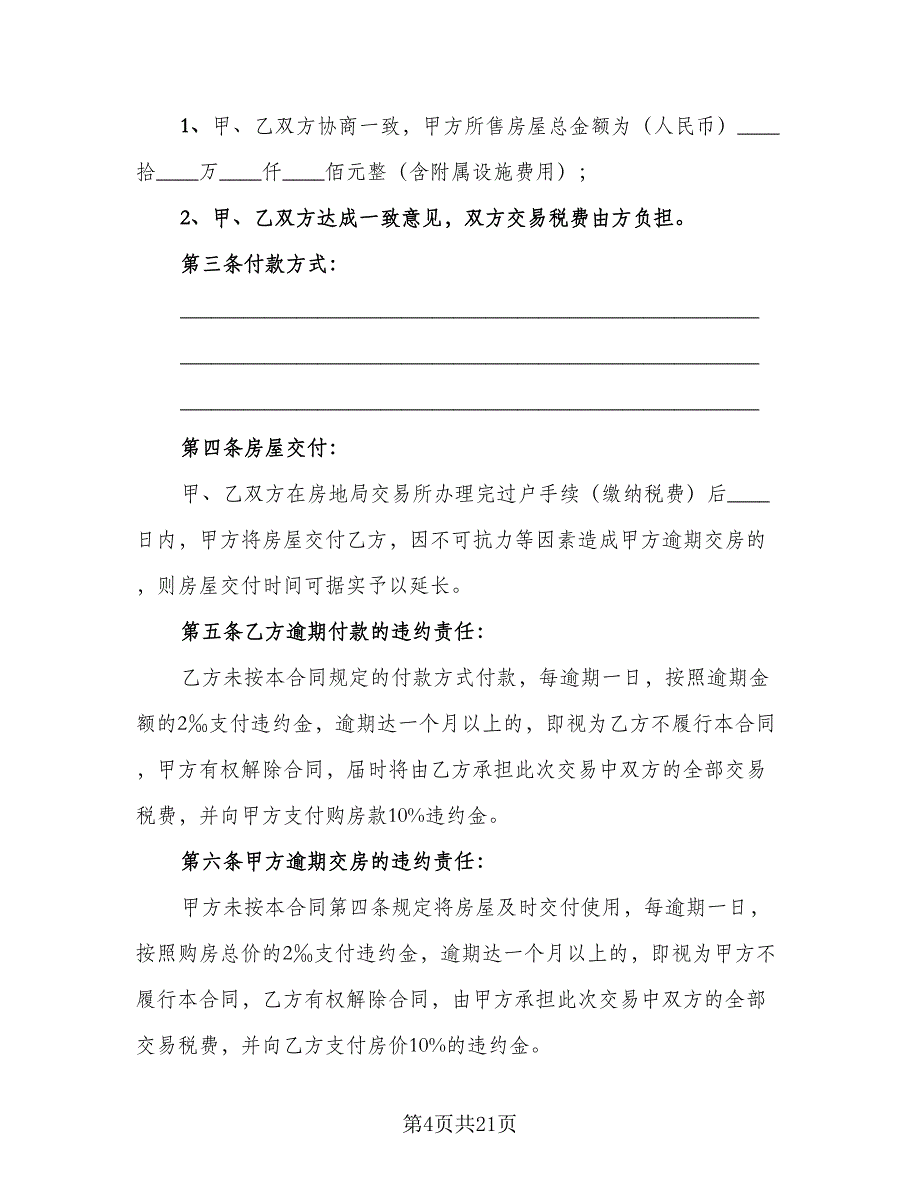 1、甲、乙双方协商一致，甲方所售房屋总金额为（人民币）____
拾____万____仟____佰元整（含附属设施费用）；
2、甲、乙双方达成一致意见，双方交易税费由方负担。
第三条付款方式：
______________________________________________________
______________________________________________________
______________________________________________________
第四条房屋交付：
甲、乙双方在房地局交易所办理完过户手续（缴纳税费）后____
日内，甲方将房屋交付乙方，因不可抗力等因素造成甲方逾期交房的
，则房屋交付时间可据实予以延长。
第五条乙方逾期付款的违约责任：
乙方未按本合同规定的付款方式付款，每逾期一日，按照逾期金
额的2‰支付违约金，逾期达一个月以上的，即视为乙方不履行本合同
，甲方有权解除合同，届时将由乙方承担此次交易中双方的全部交易
税费，并向甲方支付购房款10%违约金。
第六条甲方逾期交房的违约责任：
甲方未按本合同第四条规定将房屋及时交付使用，每逾期一日，
按照购房总价的2‰支付违约金，逾期达一个月以上的，即视为甲方不
履行本合同，乙方有权解除合同，由甲方承担此次交易中双方的全部
交易税费，并向乙方支付房价10%的违约金。
第4页共21页